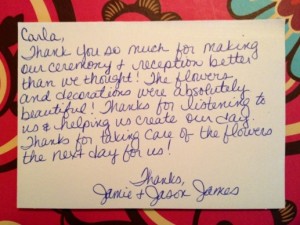 Carla,
Thank you so much for making
our ceremony + reception better
than we thought! The flowers
and decorations were absolutely
beautiful! Thanks for listening to
us & helping us create our day.
Thanks for taking care of the flowers
the next day for us!
Thanks,
Jamie + Jason James